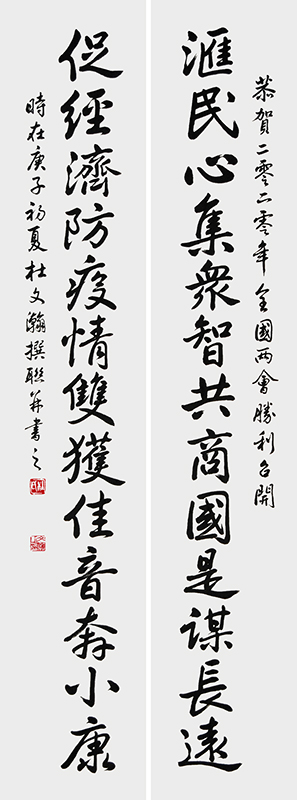 恭賀二零二零年全國两會勝利召開
滙民心集衆智共商國是謀長遠
促經濟防疫情雙獲佳音奔小康
時在庚子初夏杜文瀚撰聯并書之